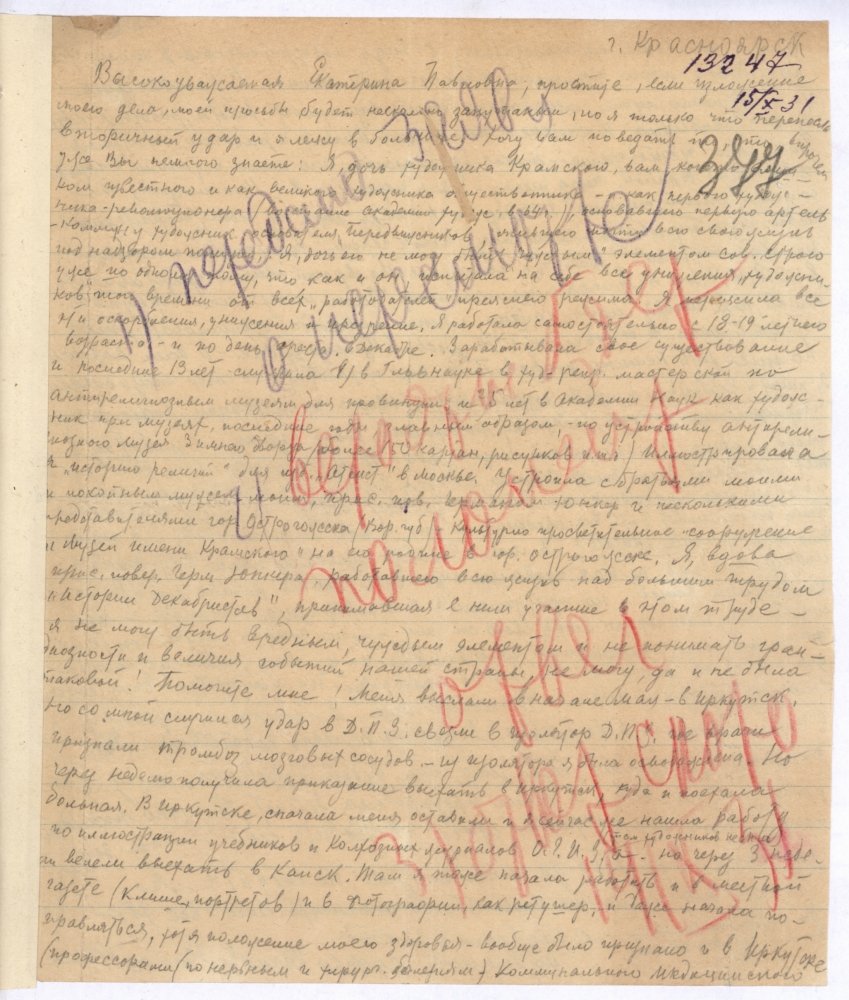 г. Красноярск
13247
15/X 31
Высокоуважаемая Екатерина Павловна, простите, если изложение
моего дела, моей просьбы будет несколько запутанным, но я только что перенесла
вторичный удар и лежу в больнице. Хочу вам поведать то, что впрочем
уже Вы немного знаете: Я, дочь художника Крамского, вам,
ком известного и как великого художника общественника – как первого худож-
ника-революционера, основавшего первую артель
-коммуну художников, основателя "Передвижников"
под надзором полиции, Я, дочь его не могу быть "чуждым" элементом сов. строю
уже по одному тому, что как и он испытала на себе все унижения, художни-
ков того времени от всех "работодателей" прежнего режима. Я переносила все
эти оскорбления, унижения и презрение, Я работала самостоятельно с 18-19 летнего
возраста – и по день ареста в декабре. Зарабатывала свое существование
и последние 13 лет служила 8 л в Главнауке в худ. рест. мастерской по
антирелигиозным музеям для провинции и 5 лет в Академии Наук как худож-
ник при музеях, последние годы главным образом, – по устройству антирели-
гиозного музея Зимнего дворца более 50 картин, рисунков и т.д. Иллюстрировала
я "историю религий" для изд. "Атеист" в Москве. Устроила с братьями моими
и покойным мужем моим, прис. пов. Германом Юнкер и несколькими
представителями гор. Острогожска (Вор. губ) культурно просветительное "сооружение
и Музей имени Крамского" на его родине в гор. Острогожске. Я, вдова
прис. повер. Герм. Юнкера, работавшего всю жизнь над большим трудом
"Истории Декабристов", принимавшая с ним участие в этом труде –
я не могу быть вредным, чуждым элементом и не понимать гран-
диозности и величия событий нашей страны, не могу, да и не была
таковой! Помогите мне! Меня выслали в начале мая – в Иркутск,
но со мной случился удар в Д.П.З. свезли в изолятор Д.П.З. где врачи
признали тромбоз мозговых сосудов – из изолятора я была освобождена. Но
через неделю получила приказание выехать в Иркутск, куда и поехала
больная. В Иркутске, сначала меня оставили и я сейчас же нашла работу
по иллюстрации учебников и колхозных журналов О.Г.И.З.а. (там художников нет) но через 3 неде-
ли велели выехать в Канск. Там я тоже начала работать и в местной
газете (клише, портретов) и в фотографии, как ретушер, и даже начала по-
правляться, хотя положение моего здоровья – вообще было признано и в Иркутске
(профессорами (по нервным и хирург. болезням) Коммунального Медицинского
1) передано
о пересмотре
2)
положение
ответ